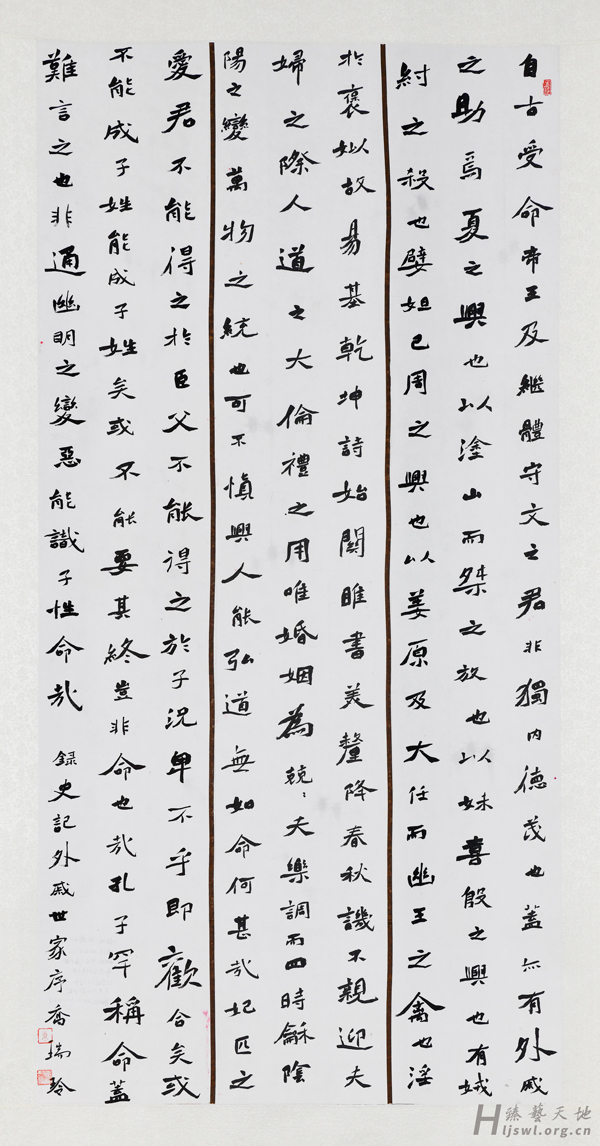 自古受命帝王及繼體守文之君非獨内德茂也蓋亦有外戚
之助焉夏之興也以塗山而桀之放也以妹喜殷之興也有娀
紂之殺也嬖妲己周之興也以姜原及大任而幽王之禽也淫
於褒姒故易基乾坤詩始關雎書美釐降春秋譏不親迎夫
婦之際人道之大倫禮之用唯婚姻為兢〻夫樂調而四時龢陰
陽之變萬物之統也可不慎與人能弘道無如命何甚哉妃匹之
愛君不能得之於臣父不能得之於子況卑不乎即歡合矣或
不能成子姓能成子姓矣或不能要其終豈非命也哉孔子罕稱命蓋
難言之也非通幽明之變惡能識子性命哉 録史記外戚世家序喬瑞玲
臻藝天地
Hljswl.org.cn